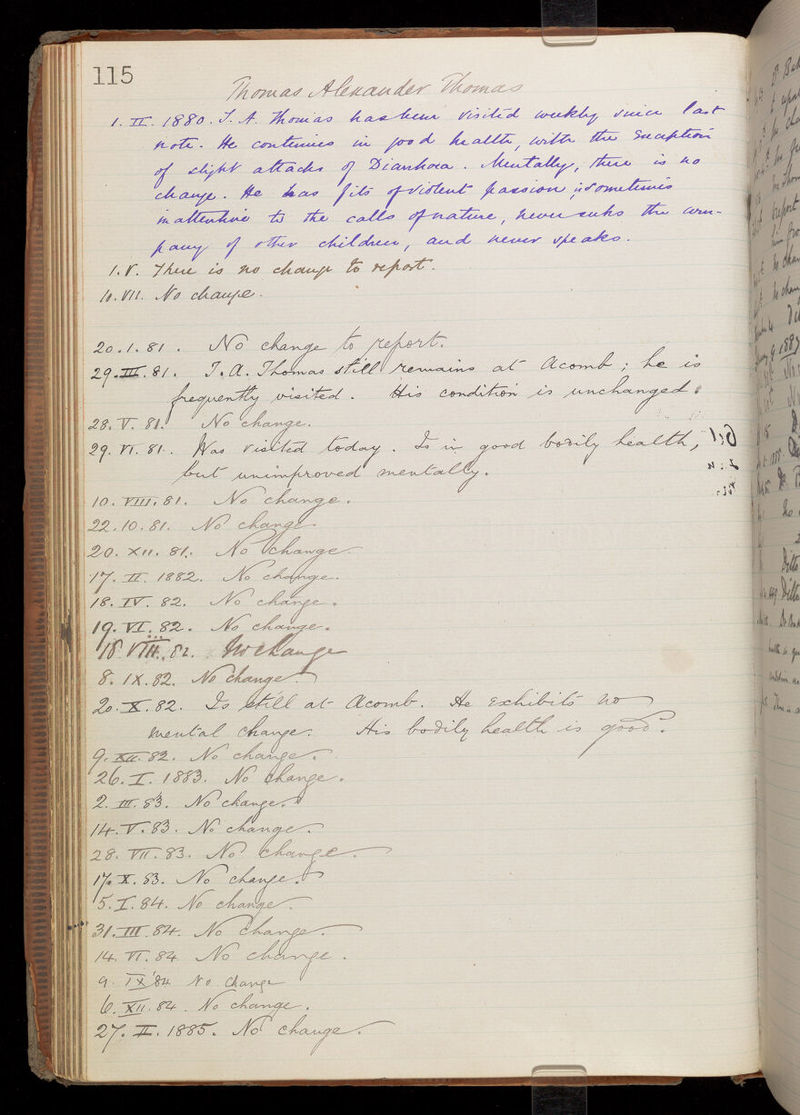 115
Thomas Alexander Thomas
1. II. 1880. T. A. Thomas has been visited weekly since last
note. He continues in good health, with the exception
of slight attacks of Diarrhoea. Mentally, there is no
change. He has fits of violent passion, is sometimes
inattentive to the calls of nature, never seeks the com-
pany of other children, and never speaks.
1. V. There is no change to report.
10. VII. No change.
20. 1. 81. No change to report.
29. III. 81. T. A. Thomas still remains at Acomb; he is
frequently visited. His condition is unchanged.
28. V. 81. No change.
29. VI. 81. Was visited today. Is in good bodily health,
but unimproved mentally.
10. VIII. 81. No change.
22. 10. 81. No change.
20. XII. 81. No change
17. II. 1882. No change.
18. IV. 82. No change.
19. VI. 82. No change.
18 VIII. 82. No change
8. IX. 82. No change.
20. X. 82. Is still at Acomb. He exhibits no
mental change. His bodily health is good.
9. XII. 82. No change.
26. I. 1883. No change.
2. III. 83. No change.
14. V. 83. No change.
28. VII. 83. No change.
17. X. 83. No change.
5. I. 84. No change.
31. III. 84. No change.
14. VI. 84 No change.
9. IX 84 No change
6. XII. 84. No change.
27. II. 1885. No change.